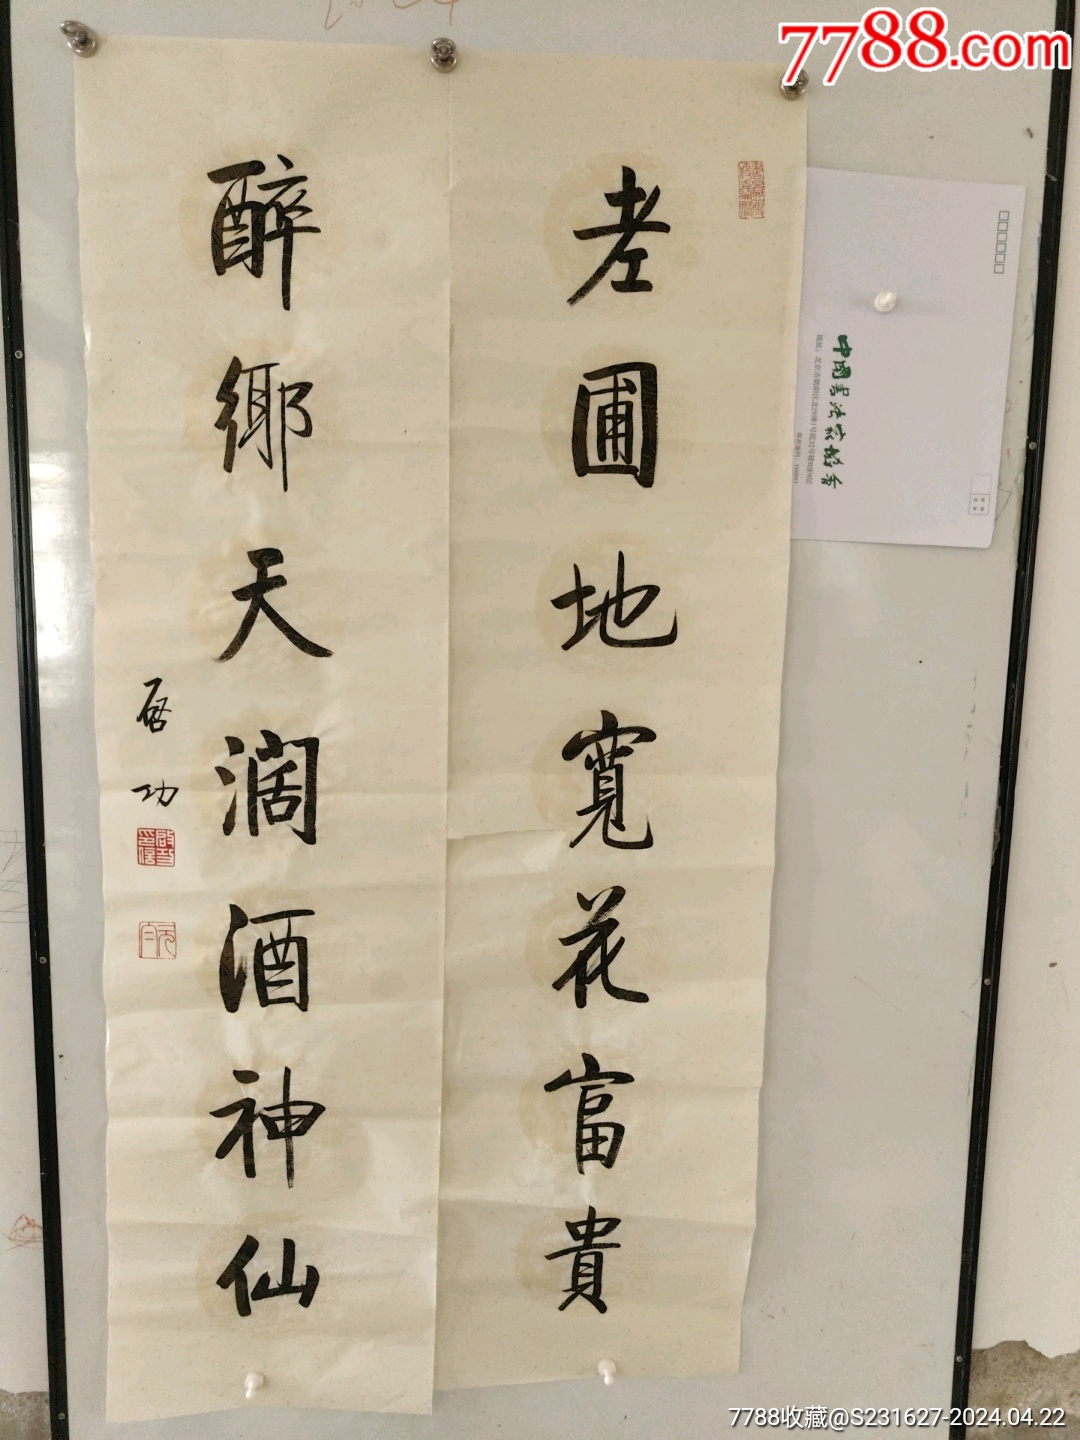 7788.com
老圃地寬花富貴
醉鄉天濶酒神仙
启功
啟功之印
元白
中國書法家協會
7788收藏@S231627-2024.04.22